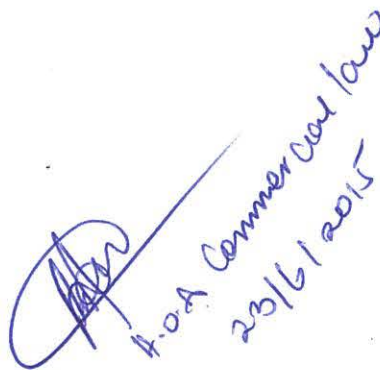 H.O.D. Commercial law
23/6/2015